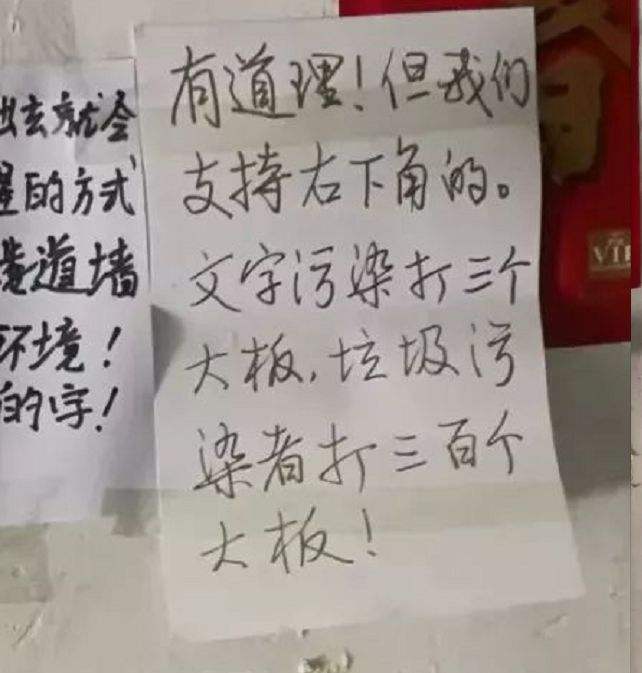 出去就会
的方式
道墙
环境！
的字！
有道理！但我们
支持右下角的。
文字污染打三个
大板，垃圾污
染者打三百个
大板！
VIP